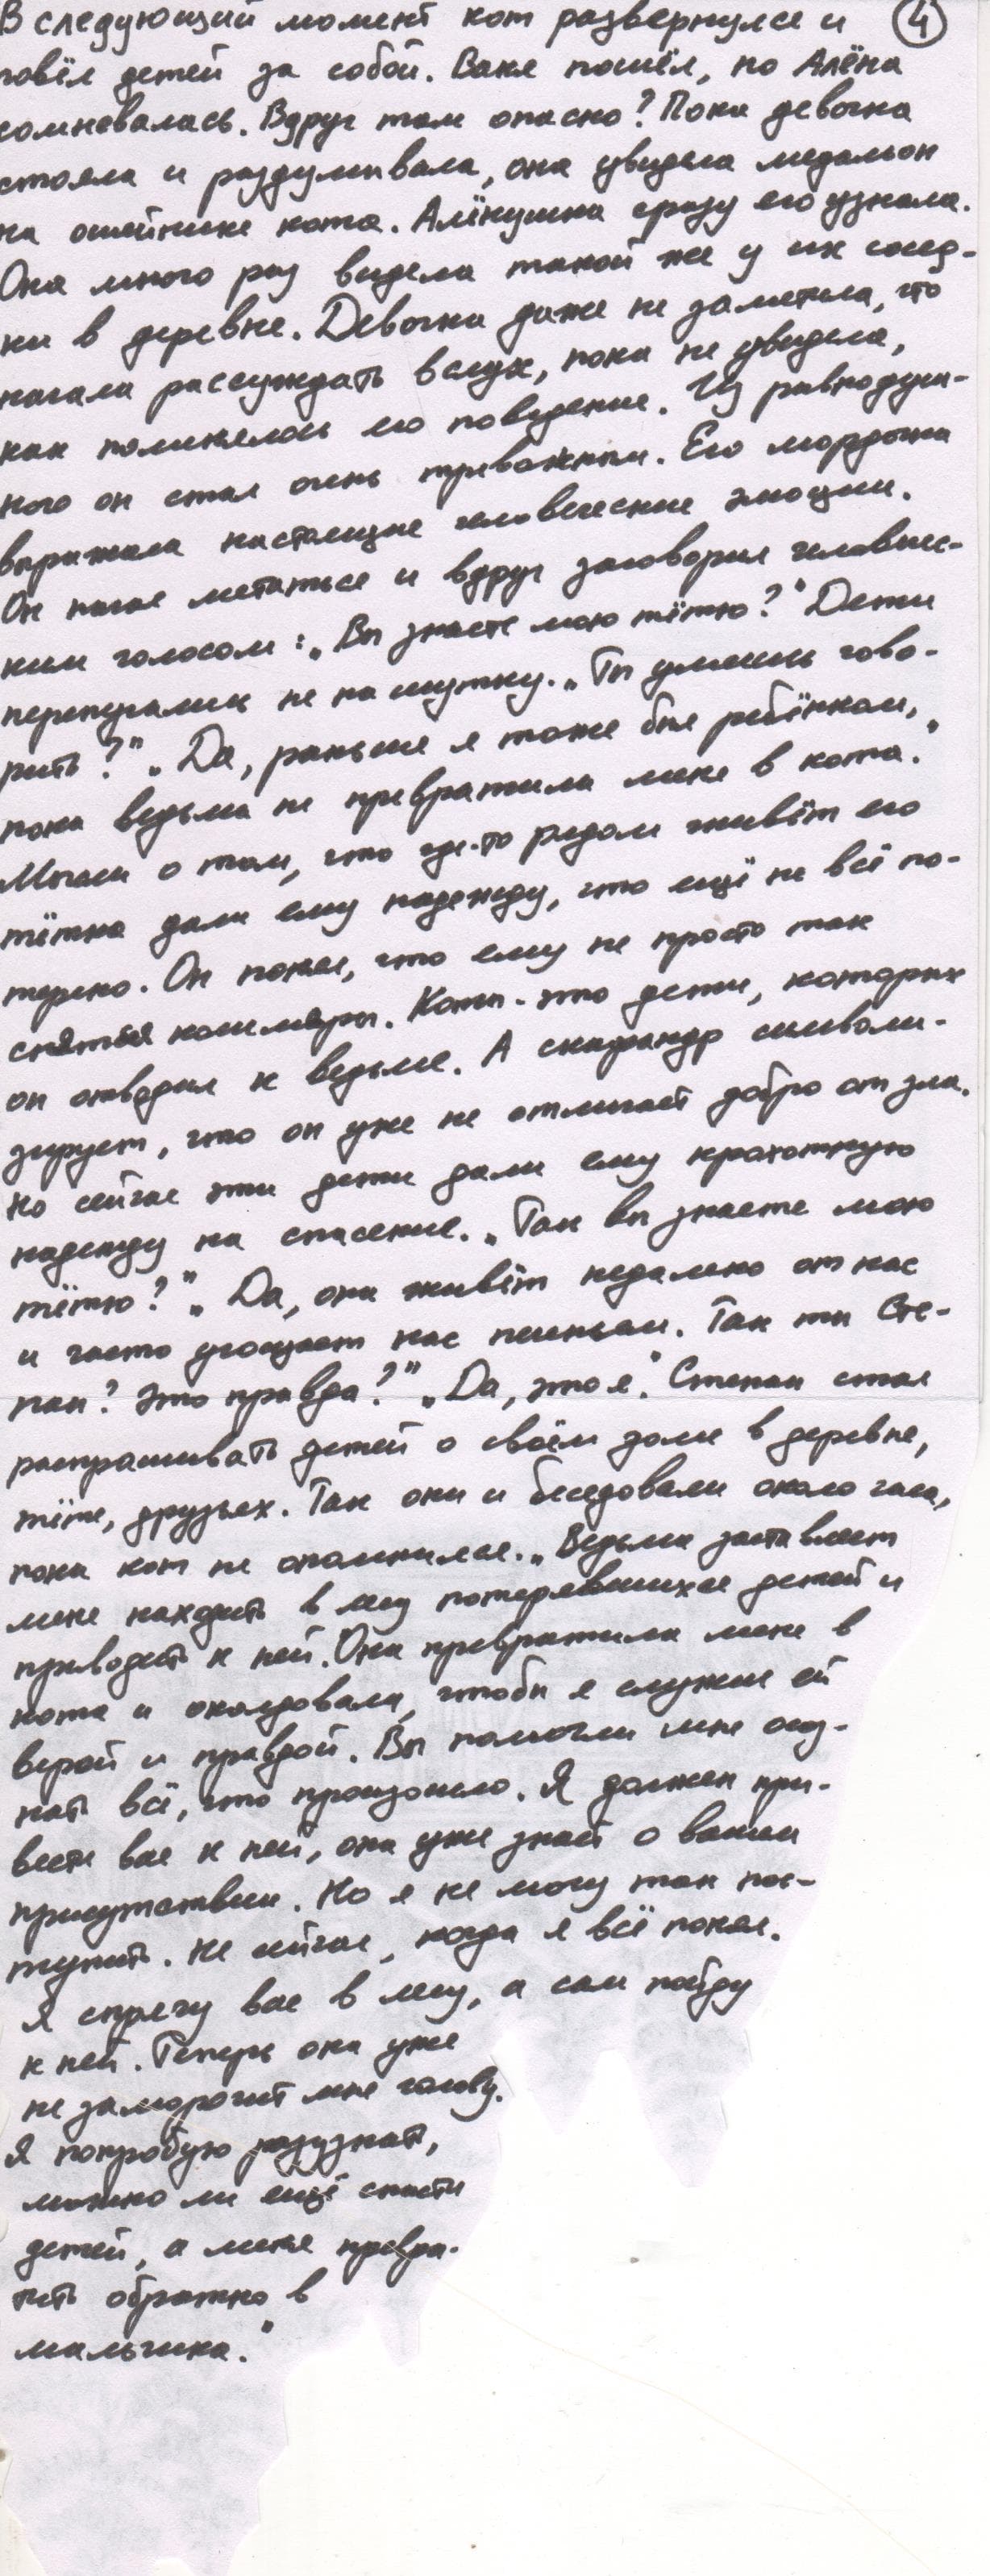 В следующий момент кот развернулся и ④
повёл детей за собой. Ваня пошёл, но Алёна
сомневалась. Вдруг там опасно? Пока девочка
стояла и раздумывала, она увидела медальон
на ошейнике кота. Алёнушка сразу его узнала.
Она много раз видела такой же у их сосед-
ки в деревне. Девочка даже не заметила, что
начала рассуждать вслух, пока не увидела,
как поменялось его поведение. Из равнодуш-
ного он стал очень тревожным. Его мордочка
выражала настоящие человеческие эмоции.
Он начал метаться и вдруг заговорил человечес-
ким голосом: „Вы знаете мою тётю?" Дети
перепугались не на шутку. „Ты умеешь гово-
рить?" „Да, раньше я тоже был ребёнком,
пока ведьма не превратила меня в кота."
Мысли о том, что где-то рядом живёт его
тётка дали ему надежду, что ещё не всё по-
теряно. Он понял, что ему не просто так
снятся кошмары. Коты - это дети, которых
он отводил к ведьме. А скафандр символи-
зирует, что он уже не отличает добро от зла.
Но сейчас эти дети дали ему крохотную
надежду на спасение. „Так вы знаете мою
тётю?" „Да, она живёт недалеко от нас
и часто угощает нас печеньем. Так ты Сте-
пан? Это правда?" „Да, это я." Степан стал
распрашивать детей о своём доме в деревне,
тёте, друзьях. Так они и беседовали около часа,
пока кот не опомнился. „Ведьма заставляет
меня находить в лесу потерявшихся детей и
приводить к ней. Она превратила меня в
кота и околдовала, чтобы я служил ей
верой и правдой. Вы помогли мне осоз-
нать всё, что произошло. Я должен при-
вести вас к ней, она уже знает о вашем
присутствии. Но я не могу так пос-
тупить. Не сейчас, когда я всё понял.
Я спрячу вас в лесу, а сам пойду
к ней. Теперь она уже
не заморочит мне голову.
Я попробую разузнать,
можно ли ещё спасти
детей, а меня превра-
тить обратно в
мальчика."